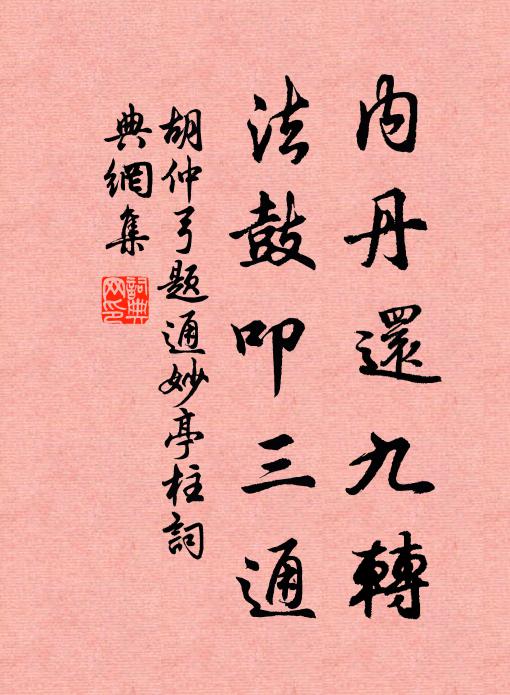 內丹還九轉
法鼓叩三通
胡仲弓題通妙亭柱詞
典網集
詞典
网印